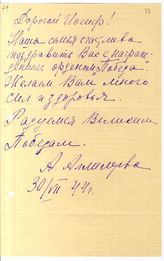 Дорогой Иосиф!
Наша семья счастлива
поздравить Вас с награж-
дением орденом "Победа".
Желаем Вам много
сил и здоровья.
Радуемся Великим
Победам.
А. Аллилуева
30/VII 44 г.